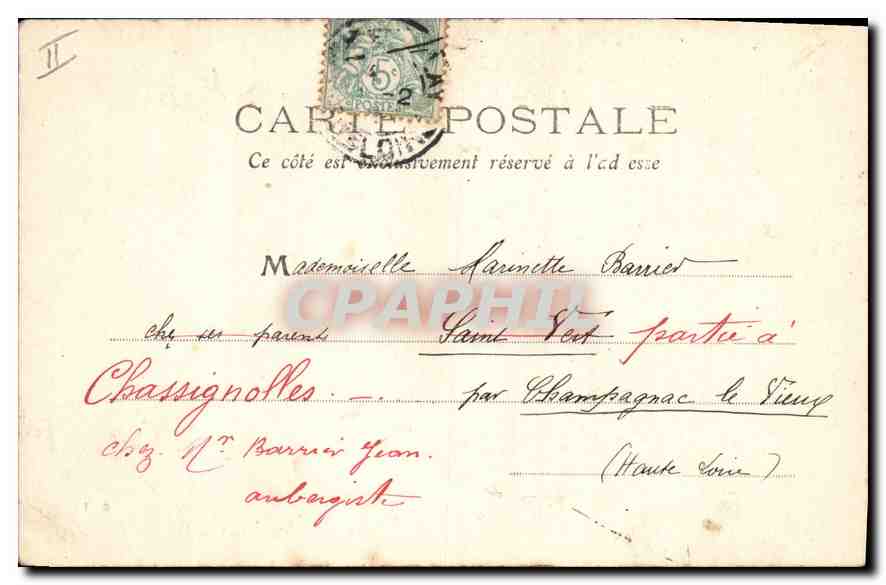 II
5c
POSTES
CARTE POSTALE
Ce côté est exclusivement réservé à l'ad esse
Mademoiselle Marinette Barrier
CPAPHIL
chez ses parents Saint Vert partie à
Chassignolles. — . par Champagnac le Vieux
chez Mr Barrier Jean. (Haute Loire)
aubergiste